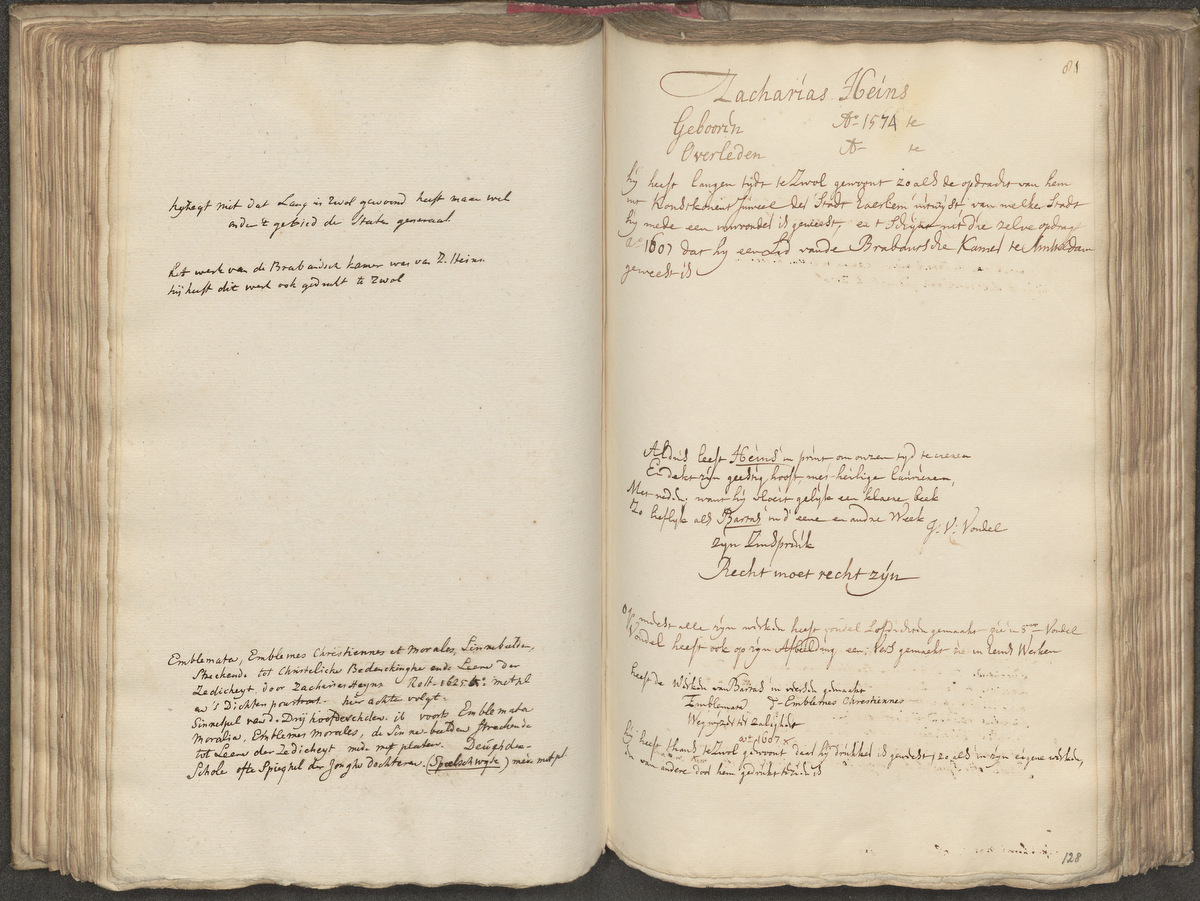 hij zegt niet dat Lang in Zwol gewoond heeft maar wel
onder 't gebied der Staten generaal
het werk van de Brabandsche kamer was van Z. Heins.
hij heeft dit werk ook gedrukt te Zwol
Emblemata, Emblemes Chrestiennes et Morales, Sinnebeelden,
Streckende tot Christeliche Bedenckinghe ende Leere der
Zedicheyt, door Zacharias Heyns Rott. 1625 4o. met pl
en 's Dichters pourtrait. hier achter volgt
Sinnespel van d. Drij hoofdeuchden. it voorts Emblemata
Moralia, Emblemes morales, de Sinnebeelden streckende
tot Leere der Zedicheyt mede met platen. Deughden-
Schole ofte Spieghel der Jonghe Dochteren. (Speelschwyse) mede met pl
81
Zacharias Heins
Gebooren Ao 1574 te
Overleden Ao te
hij heeft langen tijdt te Zwol gewoont zo als de opdracht van hem
Konstthonent Juweel der Stadt Haerlem uitwijst van welke Stadt
hij mede een inwonder is geweest, en 't Schijnt uit die zelve opdragt
ao 1607 dat hij een Lid vande Brabandsche Kamer te Amsterdam
geweest is
Aldus leeft Heins in print om onzen tyd te cieren
En dekt zijn geestig hooft met heilige laurieren,
Met reden: want hij vloeit gelijk een klaere beek
Zo lieflijk als Bartas in d' eene en andre Week
J: V: Vondel
zijn Zinspreuk
Recht moet recht zijn
Op meest alle zijn werken heeft Vondel Lofdichten gemaakt die in Vondel
Vondel heeft ook op zijn Afbeelding een Vers gemaakt die in Werken
heeft de Werken van Bartas in verssen gemaakt
Emblemata, &- Emblemes Chrestiennes
Wegwyzer ter zaligheit
ao 1607
hij heeft thans te Zwol gewoont daer hij drukker is geweest, zo als in zijn eigene werken,
en van andere door hem gedrukt te zien is
128